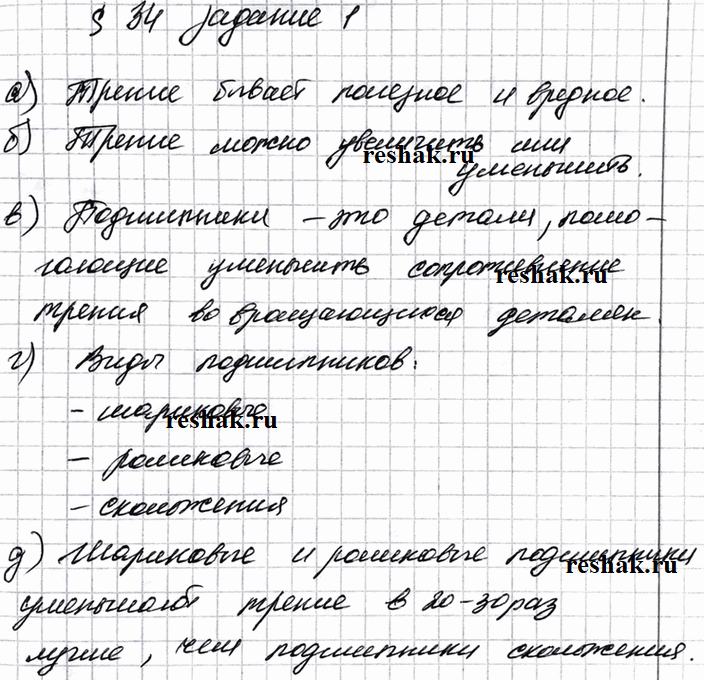 § 34 Задание 1
а) Трение бывает полезное и вредное.
б) Трение можно увеличить или
уменьшить.
в) Подшипники – это детали, помо-
гающие уменьшить сопротивление
трения во вращающихся деталях.
г) Виды подшипников:
- шариковые
- роликовые
- скольжения
д) Шариковые и роликовые подшипники
уменьшают трение в 20-30 раз
лучше, чем подшипники скольжения.
reshak.ru
reshak.ru
reshak.ru
reshak.ru